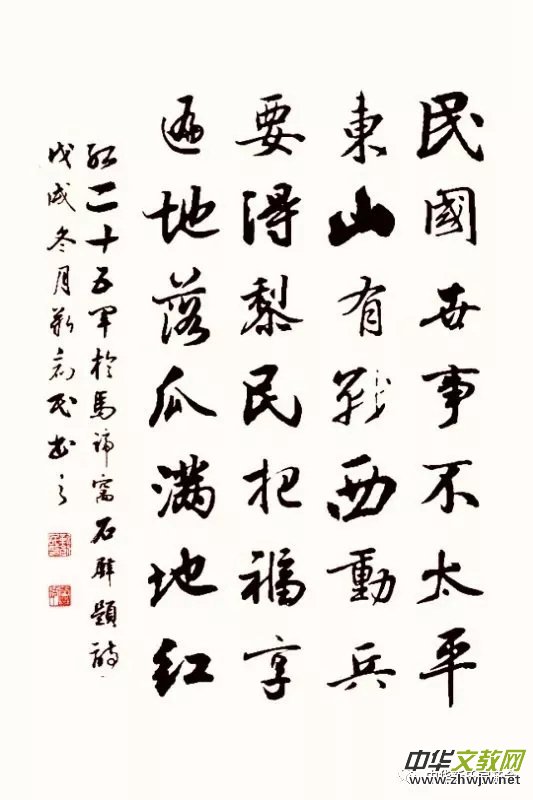 民國世事不太平
東山有戰西動兵
要得黎民把福享
遍地落瓜滿地红
红二十五軍於馬蹄窩石壁題詩
戊戌冬月靳商民书之
中华文教网
www.zhwjw.net